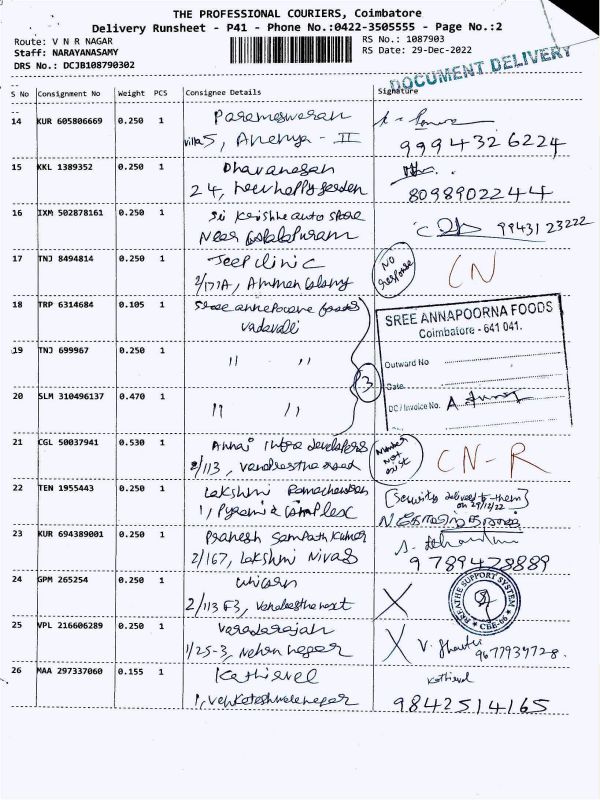 THE PROFESSIONAL COURIERS, Coimbatore
Delivery Runsheet - P41 - Phone No.:0422-3505555 - Page No.:2
Route: V N R NAGAR
Staff: NARAYANASAMY
DRS No.: DCJB108790302
RS No.: 1087903
RS Date: 29-Dec-2022
DOCUMENT DELIVERY
S No Consignment No Weight PCS Consignee Details Signature
14 KUR 605806669 0.250 1 Parameswaran
villa 5, Ananya - II
9994326224
15 KKL 1389352 0.250 1 Dhavanesan
24, new happy garden
8098902244
16 IXM 502878161 0.250 1 Sri Krishna auto store
Near
9943123222
17 TNJ 8494814 0.250 1 Jeep clinic
2/171A, Amman Colony
NO response
CN
18 TRP 6314684 0.105 1 Sree annapoorna foods
vadavalli
SREE ANNAPOORNA FOODS
Coimbatore - 641 041.
Outward No
Date
DC / Invoice No.
19 TNJ 699967 0.250 1 " "
3
20 SLM 310496137 0.470 1 " "
21 CGL 50037941 0.530 1 Annai Infra developers
2/113,
Number not exist
CN-R
22 TEN 1955443 0.250 1 Lakshmi Ramachandran
1, Pyramid Complex
[Security delivered to them]
on 29/12/22
23 KUR 694389001 0.250 1 Prahesh Sampath Kumar
2/167, Lakshmi Nivas
9789479889
24 GPM 265254 0.250 1 Unicorn
2/113 F3,
X
BREATHE SUPPORT SYSTEM
CBE-66
25 VPL 216606289 0.250 1 Varadarajan
1/25-3, Nehru nagar
X
9677939728.
26 MAA 297337060 0.155 1 Kathirvel
1, Venkateshwara nagar
Kathirvel
9842514165